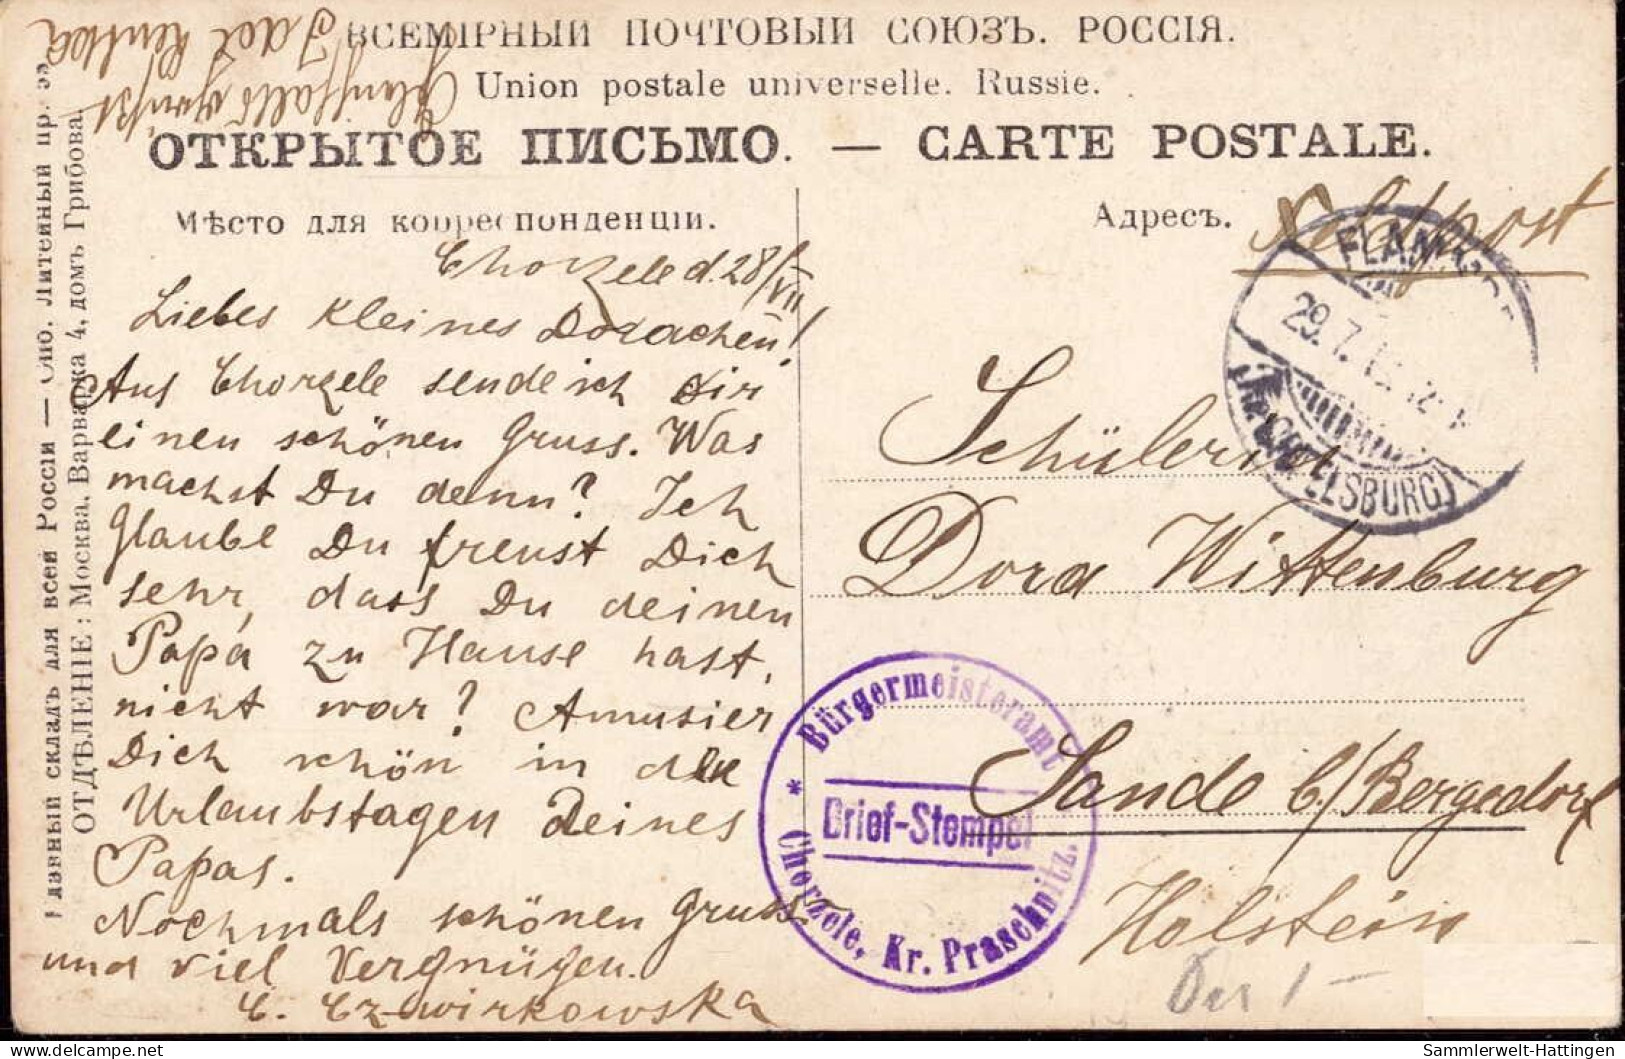 ВСЕМІРНЫЙ ПОЧТОВЫЙ СОЮЗЪ. РОССІЯ.
Union postale universelle. Russie.
ОТКРЫТОЕ ПИСЬМО. — CARTE POSTALE.
Мѣсто для корреспонденціи.
Адресъ.
Feldpost
Chorzele d. 28/VII
Liebes kleines Dorachen!
Aus Chorzele sende ich Dir
einen schönen Gruss. Was
machst Du denn? Ich
Glaube Du freust Dich
sehr, dass Du deinen
Papa zu Hause hast,
nicht war? Amusier
Dich schön in den
Urlaubstagen Deines
Papas.
Nochmals schönen Gruss
und viel Vergnügen.
C. Czwirkowska
Schülerin
Dora Wittenburg
Sande b./Bergedorf
Holstein
29.7.
ELSBURG)
* Bürgermeisteramt *
Brief-Stempel
Chorzele, Kr. Praschnitz.
Главный складъ для всей Россіи — Спб. Литейный пр.
ОТДѢЛЕНІЕ: Москва. Варварка 4, домъ Грибова.
Sammlerwelt-Hattingen
delcampe.net